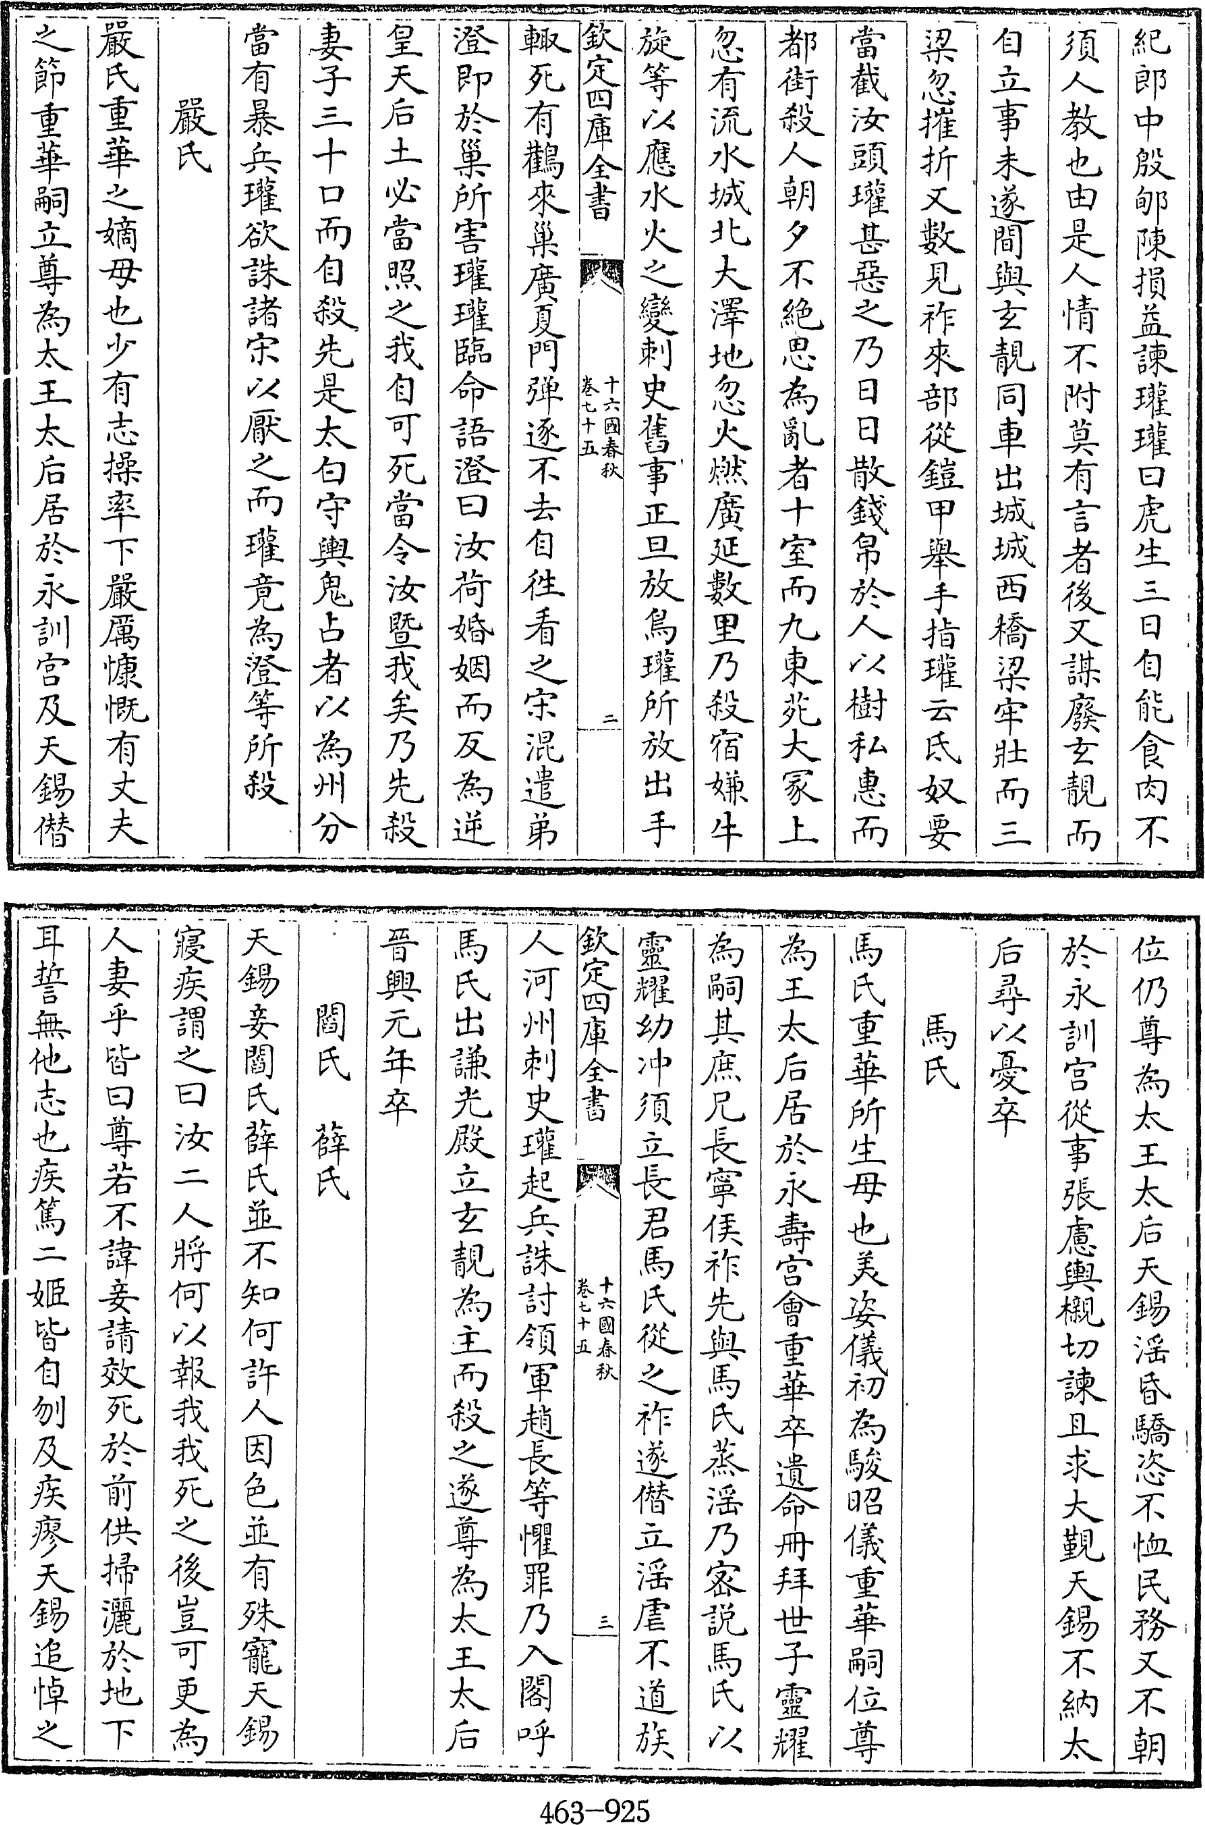 紀郎中殷郇陳損益諫瓘瓘曰虎生三日自能食肉不
須人教也由是人情不附莫有言者後又謀廢玄靚而
自立事未遂間與玄靚同車出城城西橋梁牢壯而三
梁忽摧折又數見祚來部從鎧甲舉手指瓘云氐奴要
當截汝頭瓘甚惡之乃日日散錢帛於人以樹私惠而
都街殺人朝夕不絶思為亂者十室而九東苑大冢上
忽有流水城北大澤地忽火燃廣延數里乃殺宿嫌牛
旋等以應水火之變刺史舊事正旦放鳥瓘所放出手
欽定四庫全書
十六國春秋
卷七十五
二
輙死有鸛來巢廣夏門弹逐不去自徃看之宋混遣弟
澄即於巢所害瓘瓘臨命語澄曰汝荷婚姻而反為逆
皇天后土必當照之我自可死當令汝暨我矣乃先殺
妻子三十口而自殺先是太白守輿鬼占者以為州分
當有暴兵瓘欲誅諸宋以厭之而瓘竟為澄等所殺
嚴氏
嚴氏重華之嫡母也少有志操率下嚴厲慷慨有丈夫
之節重華嗣立尊為太王太后居於永訓宫及天錫僭
位仍尊為太王太后天錫滛昏驕恣不恤民務又不朝
於永訓宫從事張慮輿櫬切諫且求大覲天錫不納太
后尋以憂卒
馬氏
馬氏重華所生母也美姿儀初為駿昭儀重華嗣位尊
為王太后居於永壽宫會重華卒遺命册拜世子靈耀
為嗣其庶兄長寧侯祚先與馬氏蒸滛乃密説馬氏以
靈耀幼冲須立長君馬氏從之祚遂僭立滛虐不道族
欽定四庫全書
十六國春秋
卷七十五
三
人河州刺史瓘起兵誅討領軍趙長等懼罪乃入閤呼
馬氏出謙光殿立玄靚為主而殺之遂尊為太王太后
晉興元年卒
閻氏 薛氏
天錫妾閻氏薛氏並不知何許人因色並有殊寵天錫
寢疾謂之曰汝二人將何以報我我死之後豈可更為
人妻乎皆曰尊若不諱妾請效死於前供掃灑於地下
耳誓無他志也疾篤二姬皆自刎及疾瘳天錫追悼之
463-925